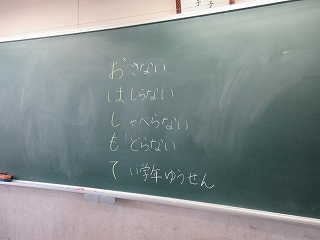 おさない
はしらない
しゃべらない
もどらない
てい学年ゆうせん